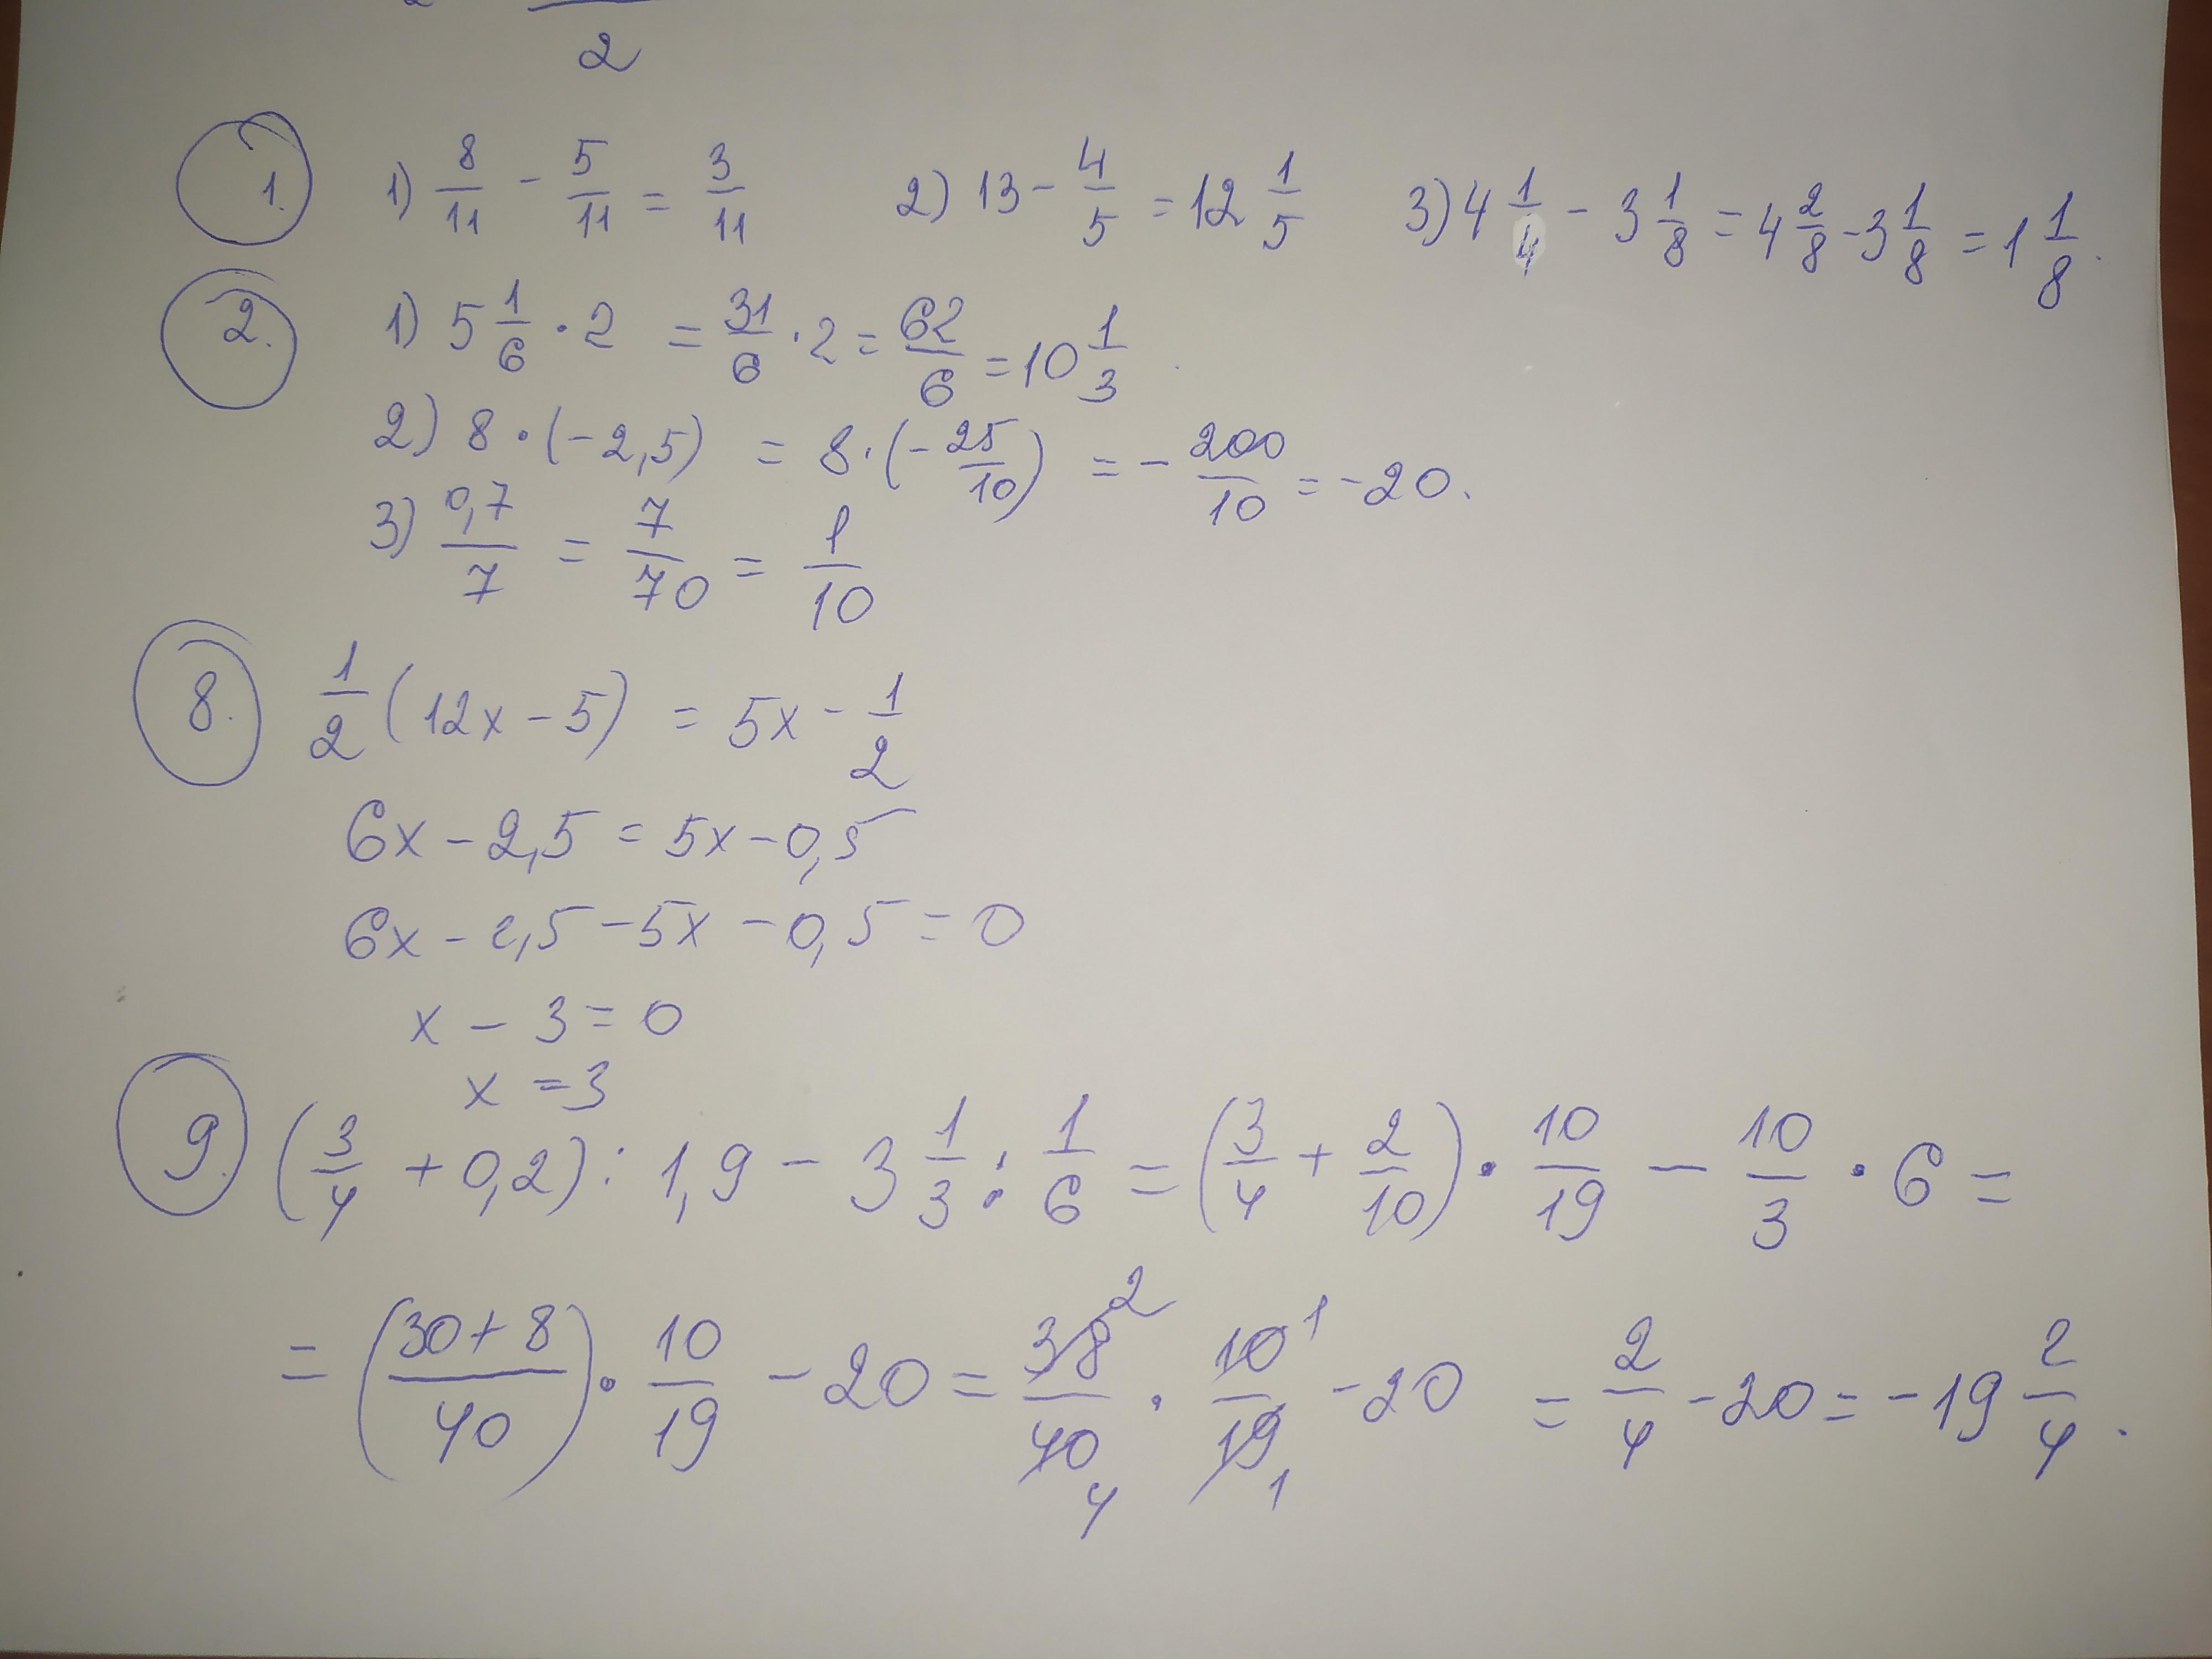 2
1. 1) 8/11 - 5/11 = 3/11 2) 13 - 4/5 = 12 1/5 3) 4 1/4 - 3 1/8 = 4 2/8 - 3 1/8 = 1 1/8.
2. 1) 5 1/6 · 2 = 31/6 · 2 = 62/6 = 10 1/3
2) 8 · (-2,5) = 8 · (-25/10) = -200/10 = -20.
3) 0,7/7 = 7/70 = 1/10
8. 1/2 (12x - 5) = 5x - 1/2
6x - 2,5 = 5x - 0,5
6x - 2,5 - 5x - 0,5 = 0
x - 3 = 0
x = 3
9. (3/4 + 0,2) : 1,9 - 3 1/3 : 1/6 = (3/4 + 2/10) · 10/19 - 10/3 · 6 =
= (30+8/40) · 10/19 - 20 = 38 2/40 4 · 10 1/19 1 - 20 = 2/4 - 20 = -19 2/4.